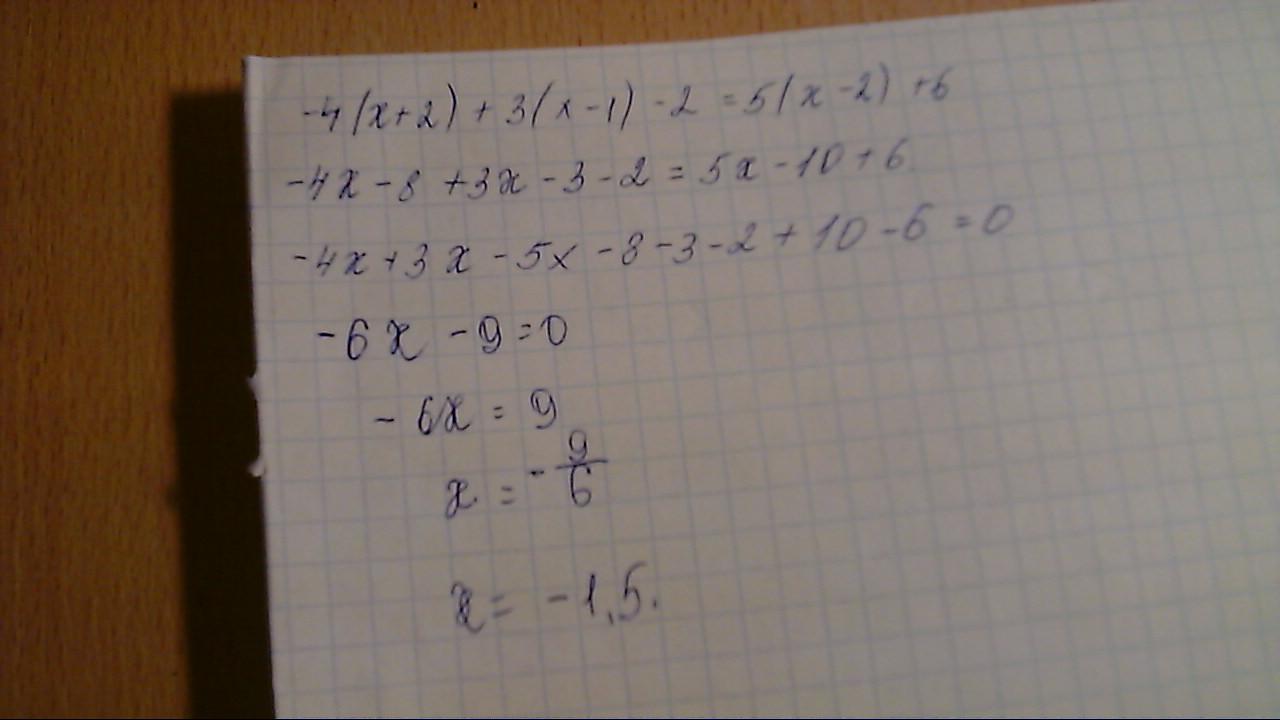 -4(x+2)+3(x-1)-2=5(x-2)+6
-4x-8+3x-3-2=5x-10+6
-4x+3x-5x-8-3-2+10-6=0
-6x-9=0
-6x=9
x=-9/6
x=-1,5.